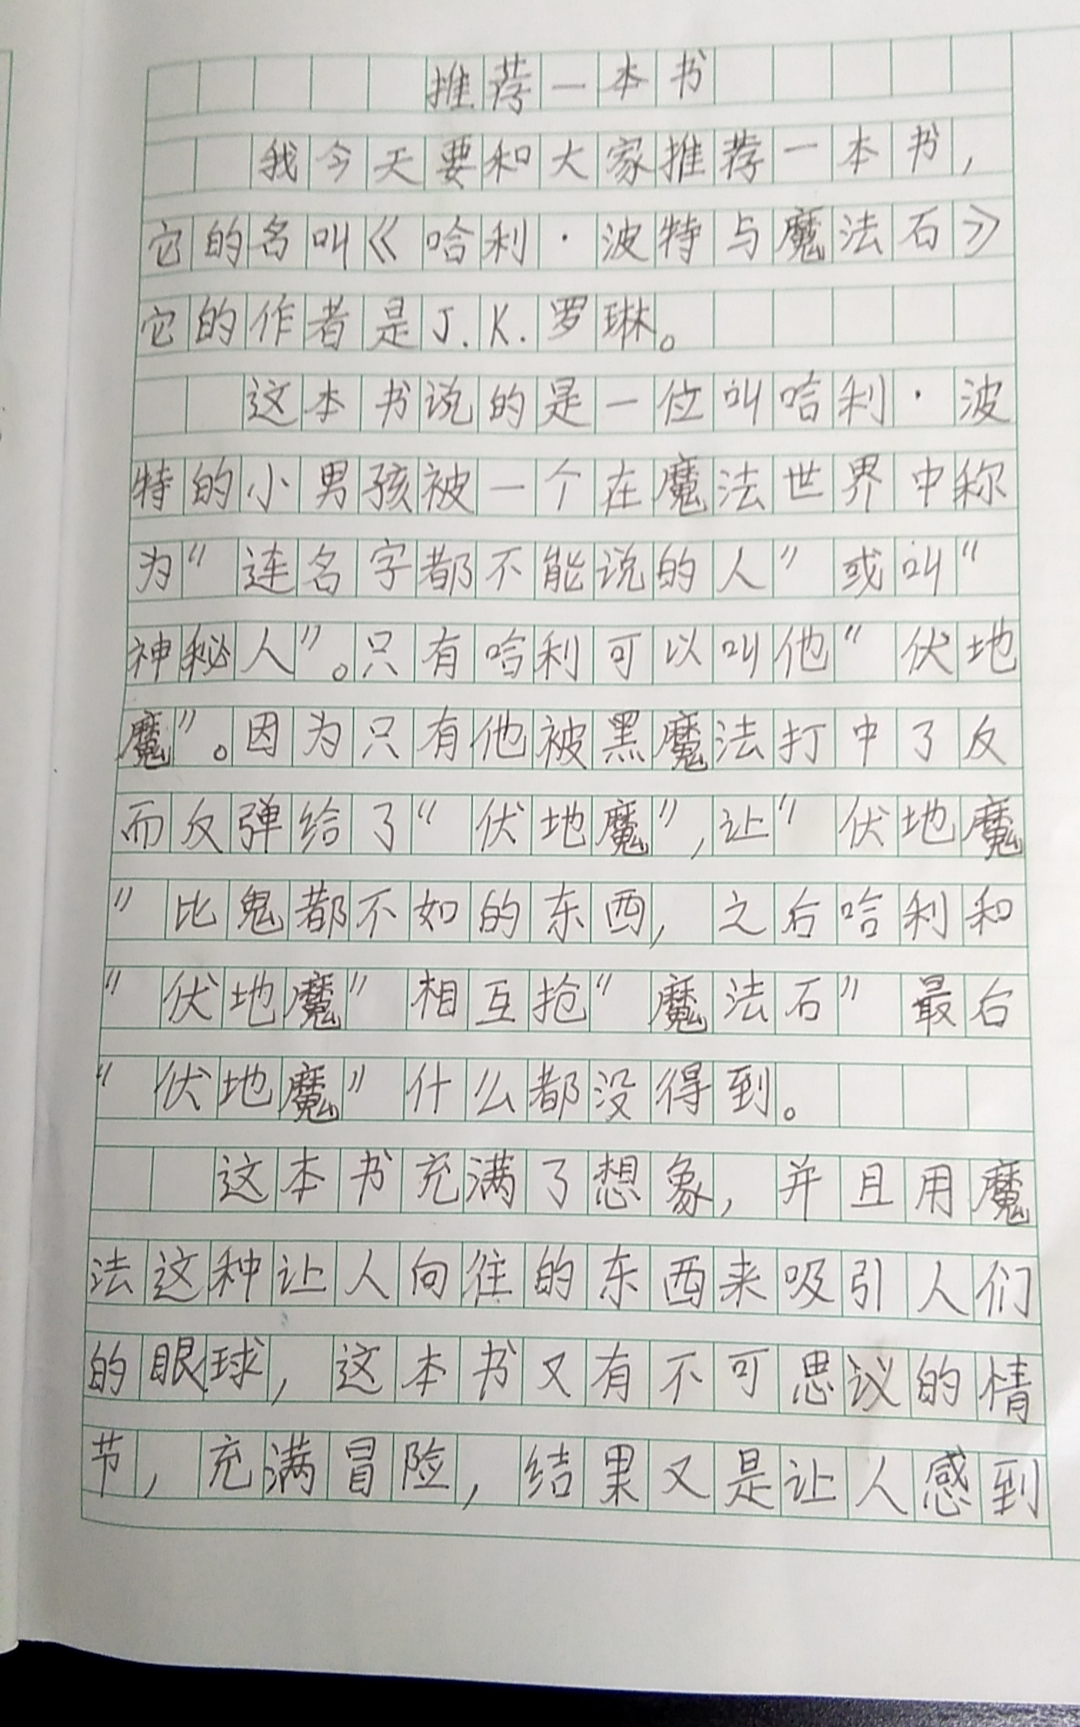 推荐一本书
我今天要和大家推荐一本书，
它的名叫《哈利·波特与魔法石》
它的作者是J.K.罗琳。
这本书说的是一位叫哈利·波
特的小男孩被一个在魔法世界中称
为“连名字都不能说的人”或叫“
神秘人”。只有哈利可以叫他“伏地
魔”。因为只有他被黑魔法打中了反
而反弹给了“伏地魔”，让“伏地魔
”比鬼都不如的东西，之后哈利和
“伏地魔”相互抢“魔法石”最后
“伏地魔”什么都没得到。
这本书充满了想象，并且用魔
法这种让人向往的东西来吸引人们
的眼球，这本书又有不可思议的情
节，充满冒险，结果又是让人感到